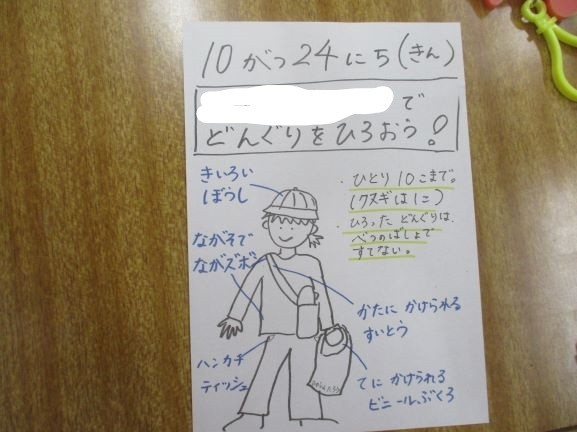 10がつ24にち(きん)
で
どんぐりをひろおう!
きいろい
ぼうし
ながそで
ながズボン
ハンカチ
ティッシュ
・ひとり10こまで。
(クヌギは1こ)
・ひろったどんぐりは、
べつのばしょで
すてない。
かたにかけられる
すいとう
てにかけられる
ビニールぶくろ